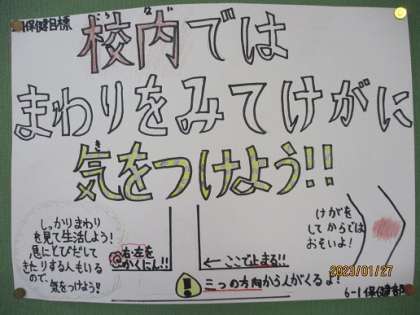 保健目標
校内では
まわりをみてけがに
気をつけよう!!
しっかりまわり
を見て生活しよう!
急にとびだして
きたりする人もいる
ので、
気をつけよう!!
右・左を
かくにん!!
←ここで止まる!!
! 三つの方向から人がくるよ!
けがを
してからでは
おそいよ!
2023/01/27
6-1保健部